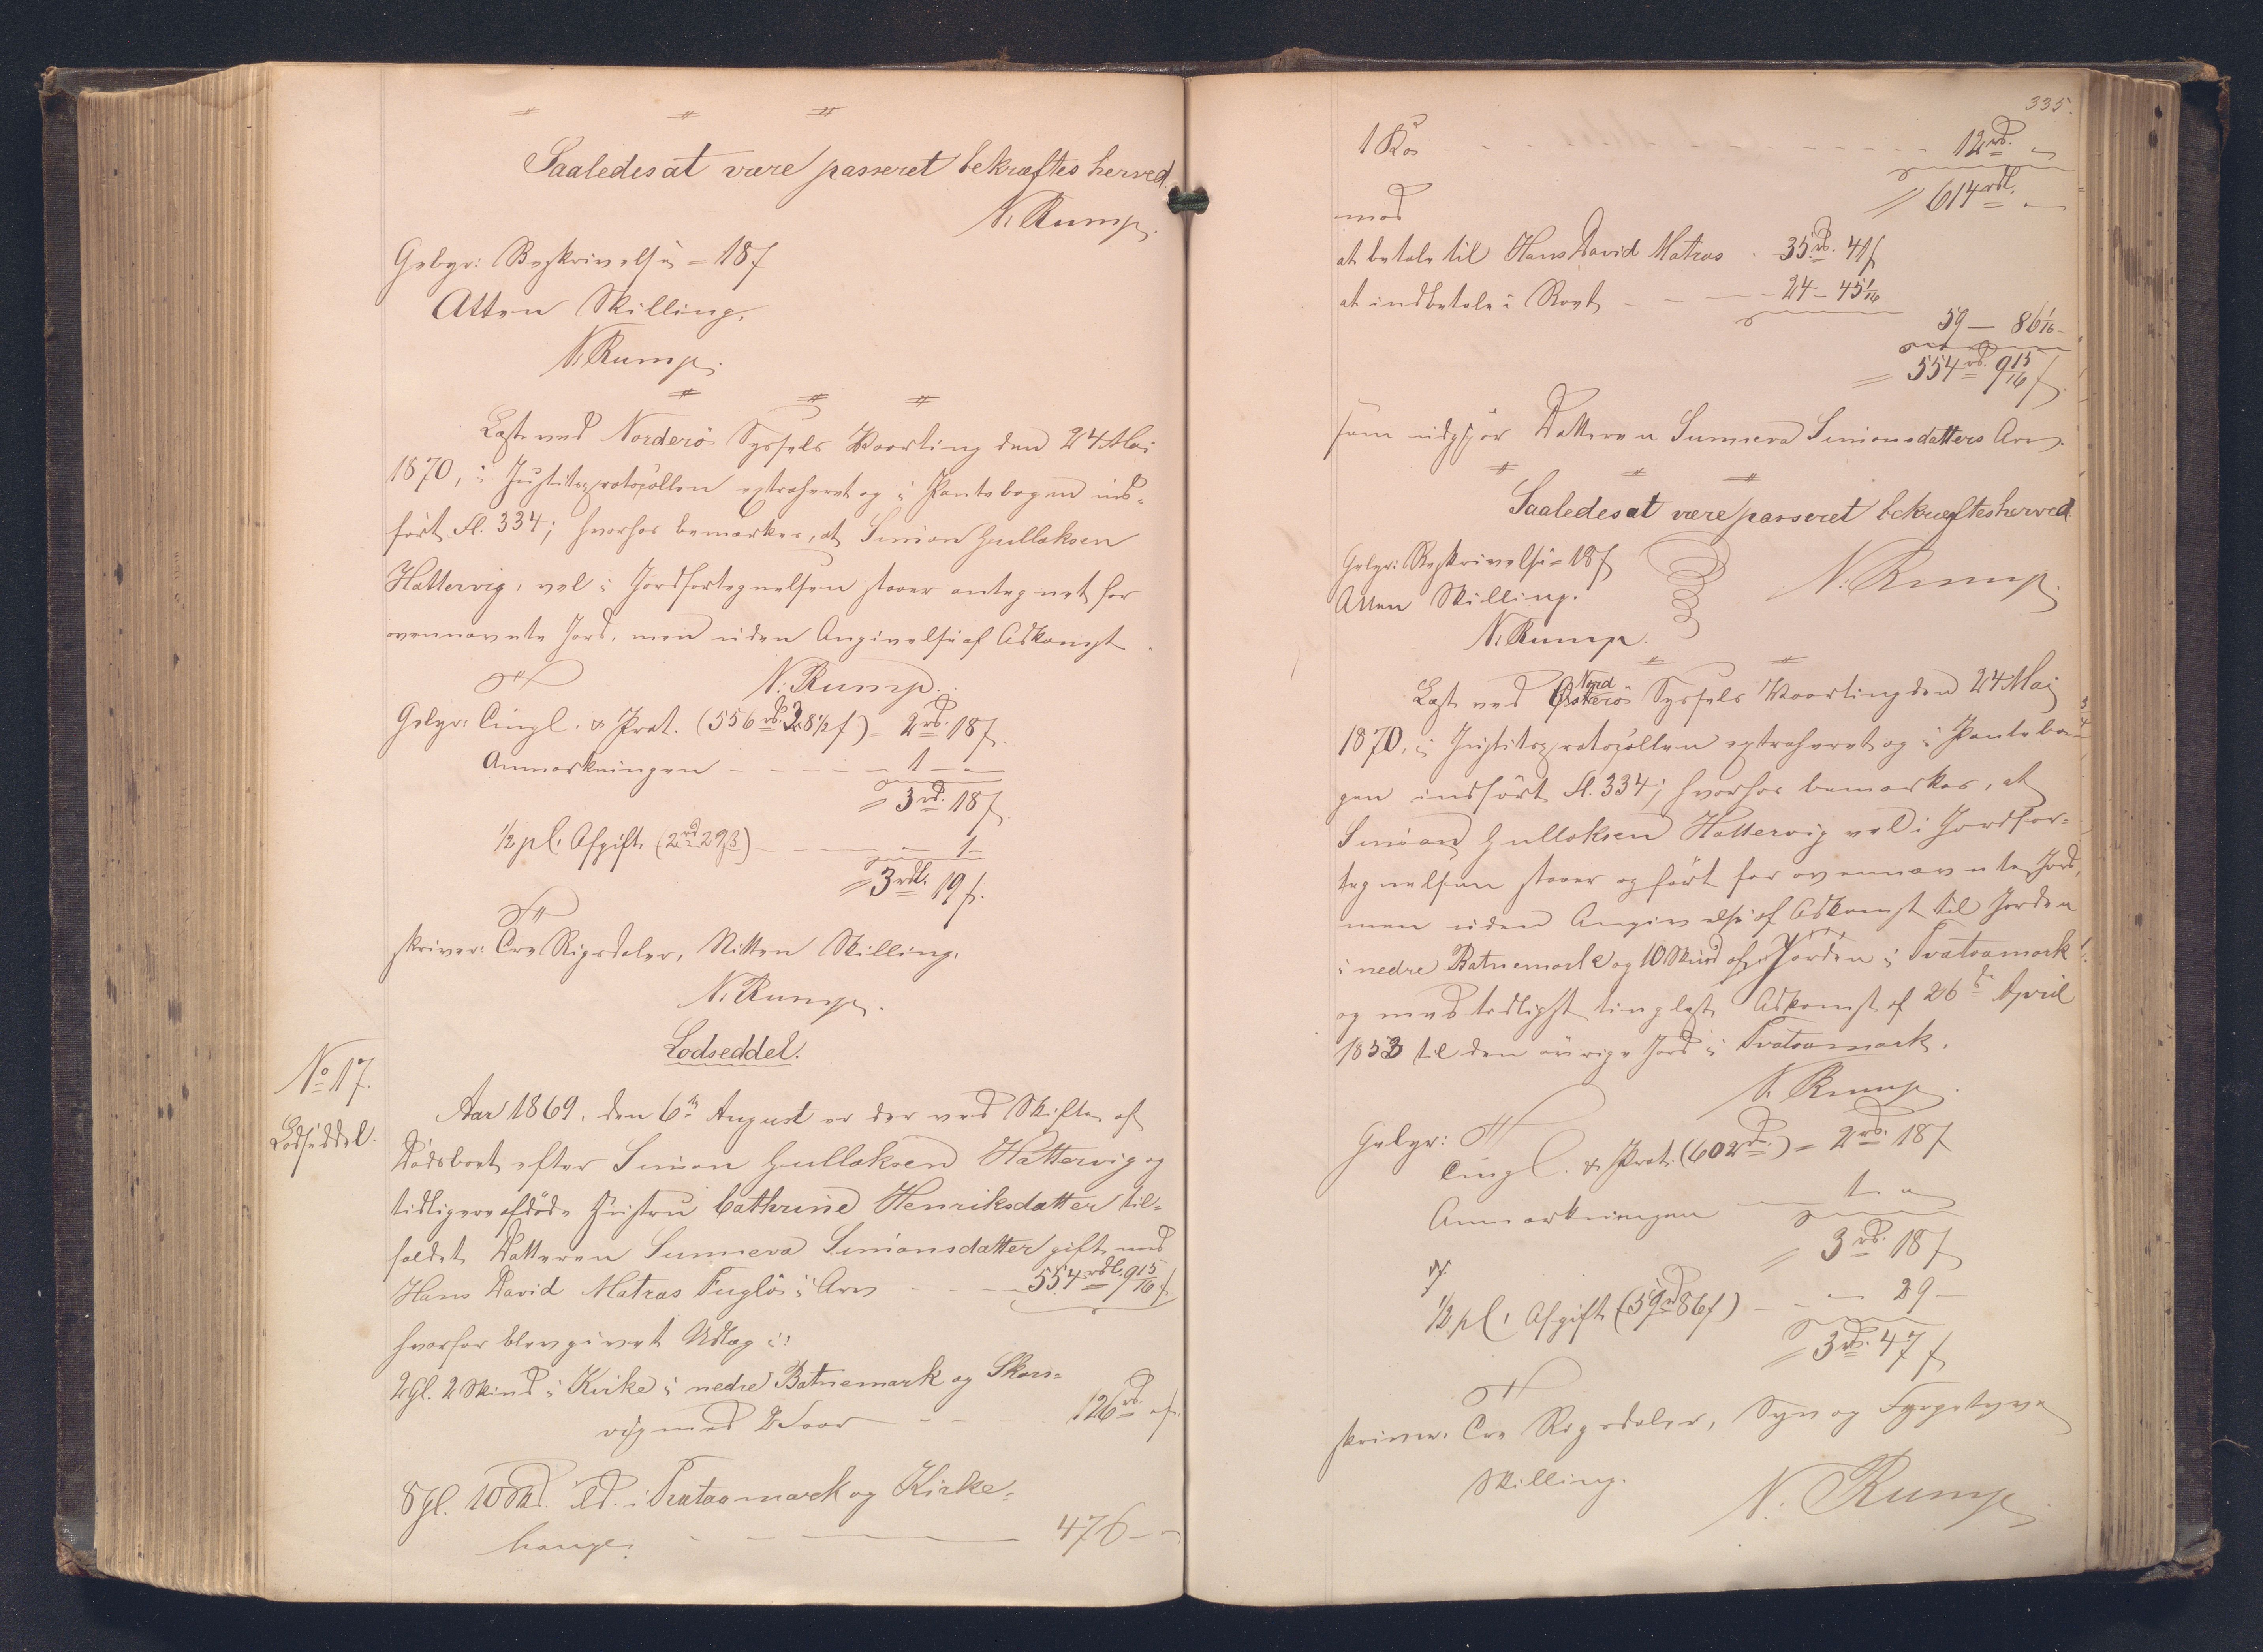 〃 〃 〃
Saaledes at være passeret bekræftes herved.
N. Rump.
Gebyr: Beskrivelse = 18 ß
Atten Skilling.
N. Rump.
〃 〃 〃
Læst ved Norderö Syssels Vaarting den 24 Mai
1870, i Justitsprotocollen extraheret og i Pantebogen ind-
fört fl. 334; hvorhos bemærkes, at Simon Gullaksen
Hattervig, vel i Jordfortegnelsen staaer antegnet for
ovennævnte Jord, men uden Angivelse af Adkomst.
N. Rump.
Gebyr: Tingl. & Prot. (556 rd. 28½ ß) = 2 rd. 18 ß
Anmærkningen - - - 1 - "
= 3 rd. 18 ß.
½ pCt. Afgift (2 rd 29 ß) - - - " 1 -
= 3 rdl. 19 ß.
skriver: Tre Rigsdaler, Nitten Skilling.
N. Rump.
Lodseddel.
No 17.
Lodseddel.
Aar 1869, den 6te August er der ved Skifte af
Dödsboet efter Simon Gullaksen Hattervig og
tidligere afdöde Hustru Cathrine Henriksdatter til-
faldet Datteren Sunneva Simonsdatter gift med
Hans David Matras Fuglö i Arv - - 554 rdl. 9 15/16 ß
hvorfor blev givet Udlæg i:
2 Gl. 2 Skind i Kirke i nedre Batnemark og Skars-
vig med Tvaar - - 126 rd. " ß.
8 Gl. 10 Sk. ld. i Tvataamark og Kirke-
hauge. - - 476 - "
335.
1 Ko - - - 12 rd. "
= 614 rdl. "
mod
at betale til Hans David Matras . 35 rd. 41 ß
at indbetale i Boet - - - 24 - 45 1/16
59 - 86 1/16 -
= 554 rd. 9 15/16 ß.
som udgjör Datteren Sunneva Simonsdatters Arv.
〃 〃 〃
Saaledes at være passeret bekræftes herved
Gebyr: Beskrivelse = 18 ß
N. Rump.
Atten Skilling.
N. Rump.
〃 〃
Læst ved Österö Nord Syssels Vaarting den 24 Mai
1870, i Justitsprotocollen extraheret og i Pantebo-
gen indfört fl. 334; hvorhos bemærkes, at
Simon Gullaksen Hattervig vel i Jordfor-
tegnelsen staaer opfört for ovennævnte Jord,
men uden Angivelse af Adkomst til Jorden
i nedre Batnemark og 10 Skind af Jorden i Tvataamark
og med tidligst tinglyst Adkomst af 26de April
1853 til den övrige Jord i Tvataamark.
N. Rump.
Gebyr:
Tingl. & Prot. (602 rd.) = 2 rd. 18 ß
Anmærkningen - 1 - "
= 3 rd. 18 ß
½ pCt. Afgift (59 rd 86 ß) - - - 29 -
= 3 rd. 47 ß
skriver: Tre Rigsdaler, Syv og Fyrgetyve
Skilling.
N. Rump